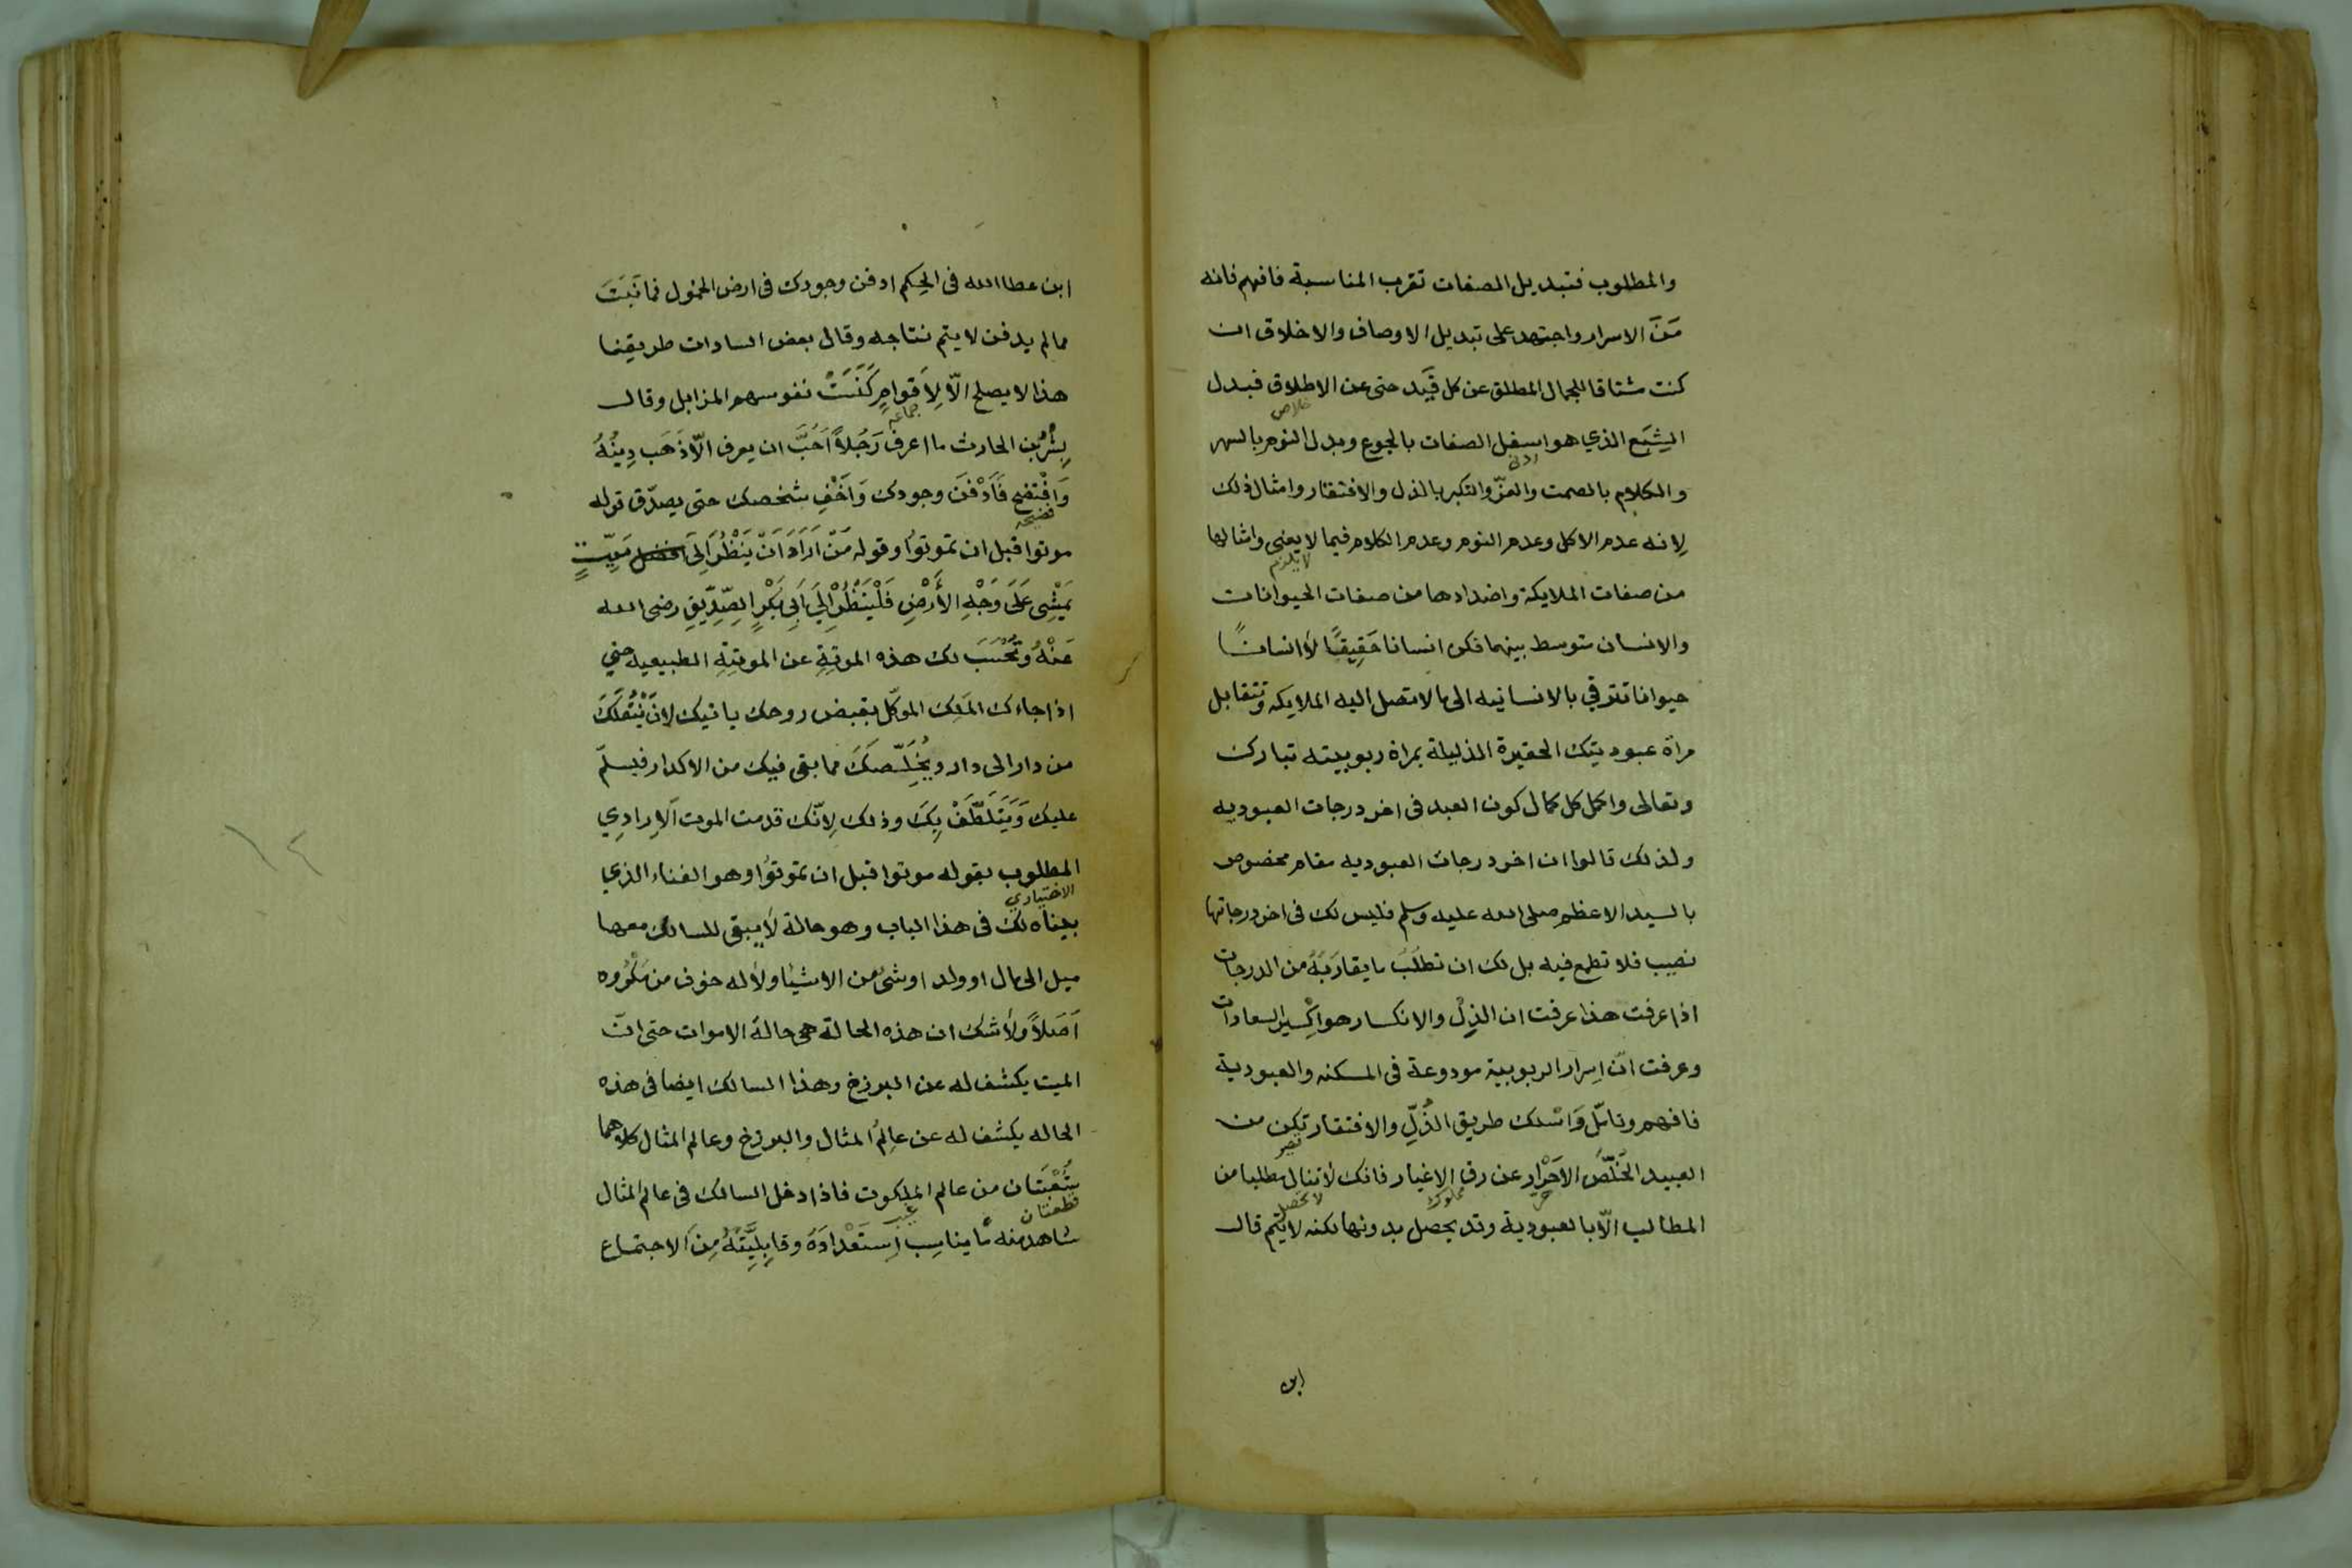 والمطلوب فتبديل الصفات تقرب المناسبة فافهم فانه
من الاسرار واجتهد على تبديل الاوصاف والاخلاق ان
كنت مشتاقا للجمال المطلق عن كل قيد حتى عن الاطلاق فبدل
خلاص
الشبع الذي هو اسفل الصفات بالجوع وبدل النوم بالسهر
ادنى
والكلام بالصمت والعزّ والتكبر بالذل والافتقار وامثال ذلك
لانه عدم الاكل وعدم النوم وعدم الكلام فيما لا يعنى وامثالها
لا يلزم
من صفات الملايكة واضدادها من صفات الحيوانات
والانسان متوسط بينهما فكن انسانا حَقِيقًا لا انسانًا
حيوانا تترقي بالانسانيه الى ما لا تصل اليه الملايكه وتتقابل
مراة عبوديتك الحقيرة الذليلة بمراة ربوبيته تبارك
وتعالى واكمل كل كمال كون العبد فى اخر درجات العبوديه
ولذلك قالوا ان اخر درجات العبوديه مقام مخصوص
بالسيد الاعظم صلى الله عليه وسلم فليس لك فى اخر درجاتها
نصيب فلا تطمع فيه بل لك ان تطلب ما يقاربَهُ من الدرجات
اذا عرفت هذا عرفت ان الذل والانكسار هو اكْسِير السعادات
وعرفت انّ اسرار الربوبية مودوعة فى المسكنه والعبودية
فافهم وتامّل وَاسْلك طريق الذُلِّ والافتقار تكن من
تصير
العبيد الخُلَّصِ الاَحْرار عن رق الاغيار فانك لا تنال مطلبا من
حرّ مملوك لا تحصل
المطالب الّا بالعبودية وقد يحصل بدونها لكنه لا يَتِم قال
ابن
ابن عطا الله فى الحِكم ادفن وجودك فى ارض الخمول فما نَبَتَ
مما لم يدفن لا يتم نتاجه وقال بعض السادات طريقنا
هذا لا يصلح الّا لِاَقوامٍ كَنَسَتْ نفوسهم المزابل وقال
جماعه
بِشْرُ بن الحارث ما اعرف رَجُلاً اَحَبَّ ان يعرف الّا ذَهَب دِينُهُ
وَافْتضح فَادْفنَ وجودك وَاَخْفِ شخصك حتى يصدّق قوله
فضيحه
موتوا قبل ان تموتوا وقوله مَنْ اَرَادَ اَنْ يَنْظُرَ اِلَى مَيِّتٍ
يَمْشِى عَلَى وَجْهِ الأَرْضِ فَلْيَنْظُرْ اِلَي اَبِى بَكْرٍ الصِّدِّيقِ رضى الله
عَنْهُ وتُحْسَبَ لك هذه الموتة عن الموتة الطبيعيه حتي
اذا جاءك المَلِك الموكّل بقبض روحك ياتيك لان يَنْقُلَكَ
من دار الى دار ويُخَلِّصَكَ مما بقى فيك من الاكدار فيسلّم
عليك وَيَتَلَطَّفْ بِكَ وذلك لِانّك قدمت الموت الاِرادِي
المطلوب بقوله موتوا قبل ان تموتوا وهو الفناء الذي
الاختياري
بيناه لك فى هذا الباب وهو حالة لا يبقى للسالك معها
ميل الى مال او ولد او شئ من الاشيا ولا له خوف من مَكْرُوه
اَصَلاً ولا شك ان هذه الحالة هى حالة الاموات حتى انّ
الميت يكشف له عن البرزخ وهذا السالك ايضا فى هذه
الحاله يكشف له عن عالم المثال والبرزخ وعالم المثال كلاهما
بُقْعَتَان من عالم الملكوت فاذا دخل السالك فى عالم المثال
قطعتان
شاهد منه مَا يناسِب اِستَعْدَادَهُ وقابِلِيَّتَهُ مِنَ الاجتماع